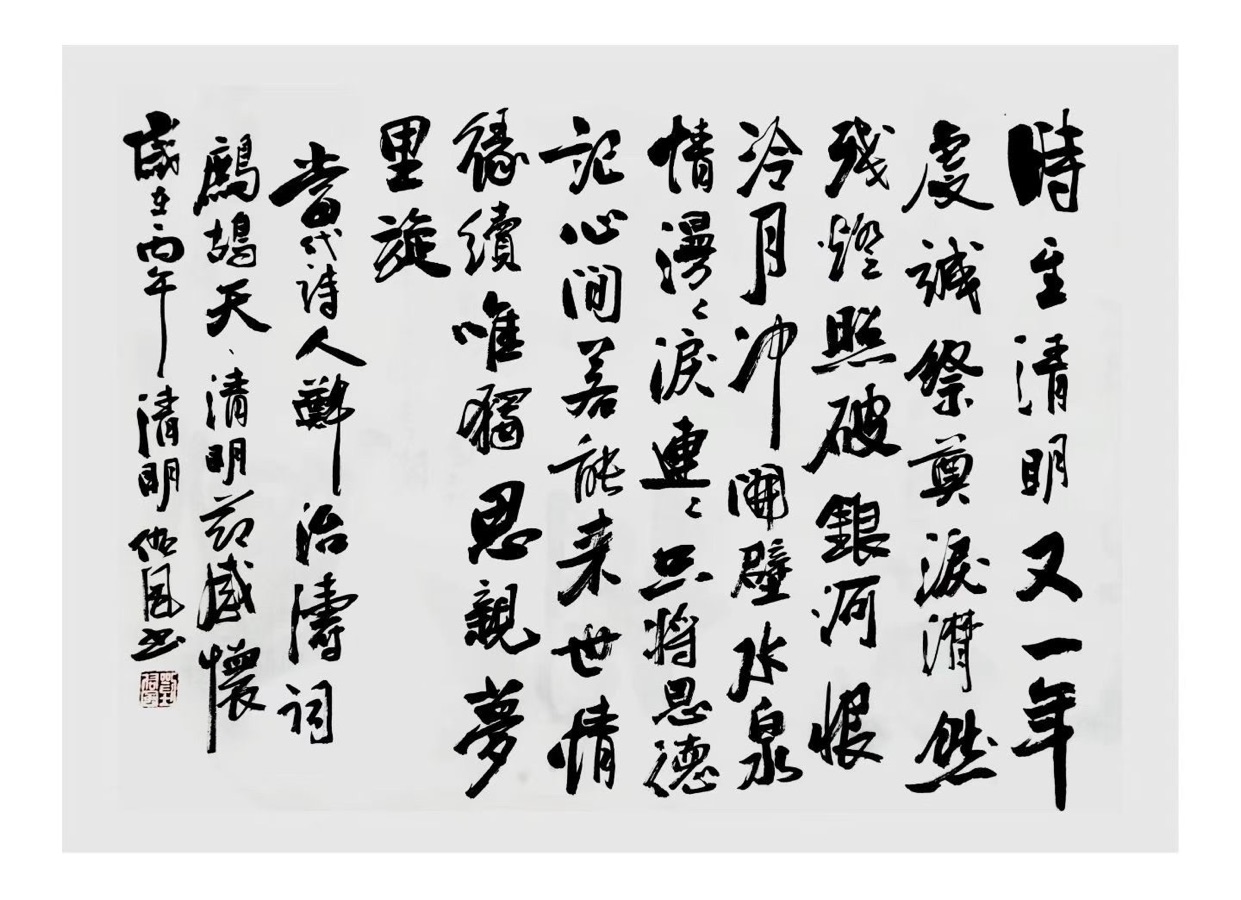 時至清明又一年
虔誠祭奠淚潸然
残燈照破銀河恨
冷月冲開壁水泉
情漫〻淚連〻只將恩德
記心間若能来世情
缘續唯獨思親夢
里旋
當代詩人鄭治濤詞
鷓鴣天、清明節感懷
歲在丙午清明 書